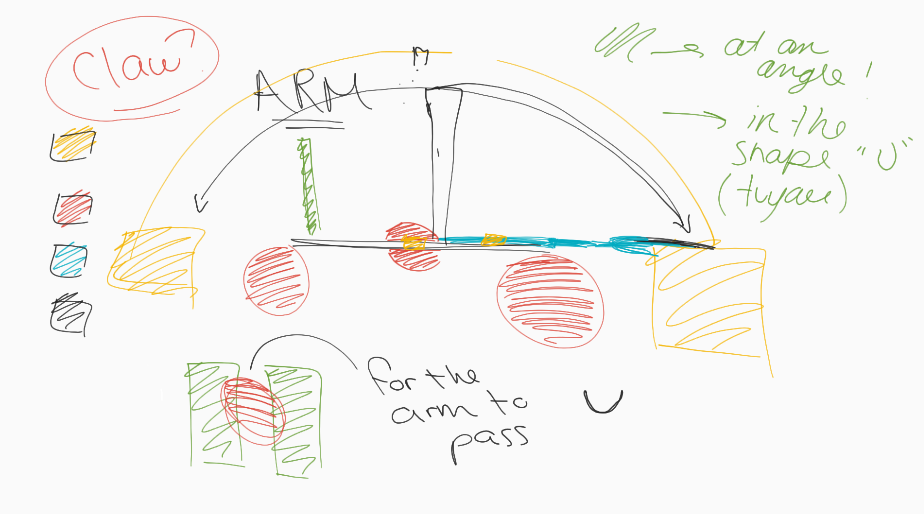 Claw?
ARM
M
→ at an
angle!
→ in the
shape "U"
(tuyau)
for the
arm to
pass
U